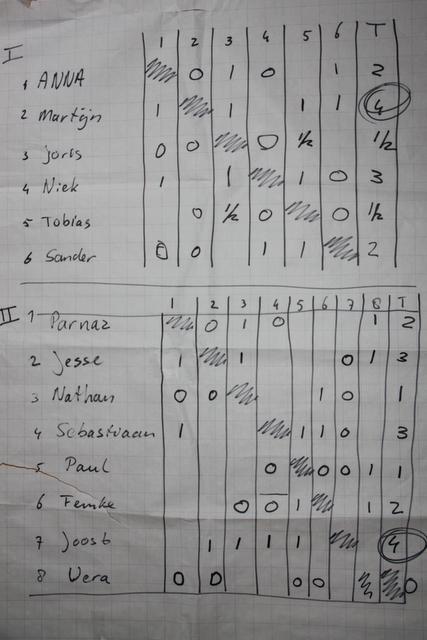 I 1 2 3 4 5 6 T
1 ANNA 0 1 0 1 2
2 Martijn 1 1 1 1 4
3 Joris 0 0 0 1/2 1/2
4 Niek 1 1 1 0 3
5 Tobias 0 1/2 0 0 1/2
6 Sander 0 0 1 1 2
II 1 2 3 4 5 6 7 8 T
1 Parnaz 0 1 0 1 2
2 Jesse 1 1 0 1 3
3 Nathan 0 0 1 0 1
4 Sebastiaan 1 1 1 0 3
5 Paul 0 0 0 1 1
6 Femke 0 0 1 1 2
7 Joost 1 1 1 1 4
8 Vera 0 0 0 0 0